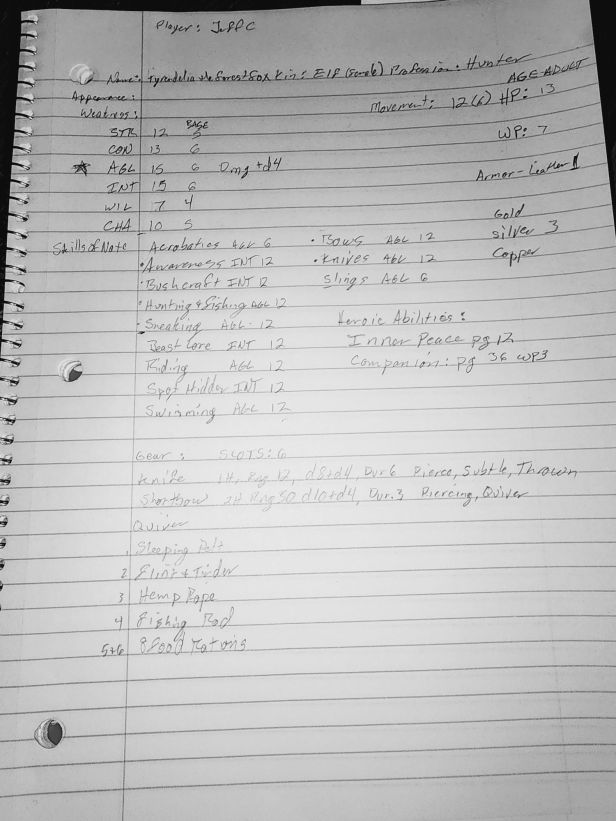 Player: Jeff C
Name: Tyrendelia the forest fox Kin: Elf (Female) Profession: Hunter
Appearance: AGE-ADULT
Weakness: Movement: 12(6) HP: 13
BASE
STR 12 5
CON 13 6 WP: 7
AGL 15 6 Dmg +d4
INT 15 6 Armor-Leather 1
WIL 7 4
CHA 10 5 Gold
Skills of Note Acrobatics AGL 6 • Bows AGL 12 Silver 3
• Awareness INT 12 • Knives AGL 12 Copper
• Bushcraft INT 12 Slings AGL 6
• Hunting & Fishing AGL 12
• Sneaking AGL 12 Heroic Abilities:
Beast Lore INT 12 Inner Peace pg 12
Riding AGL 12 Companion: pg 36 WP3
Spot Hidden INT 12
Swimming AGL 12
Gear: SLOTS: 6
Knife 1H, Rng 12, d8+d4, Dur 6 Pierce, Subtle, Thrown
Shortbow 2H Rng 30 d10+d4, Dur. 3 Piercing, Quiver
Quiver
1 Sleeping
2 Flint & Tinder
3 Hemp Rope
4 Fishing Rod
5+6 8 Food Rations